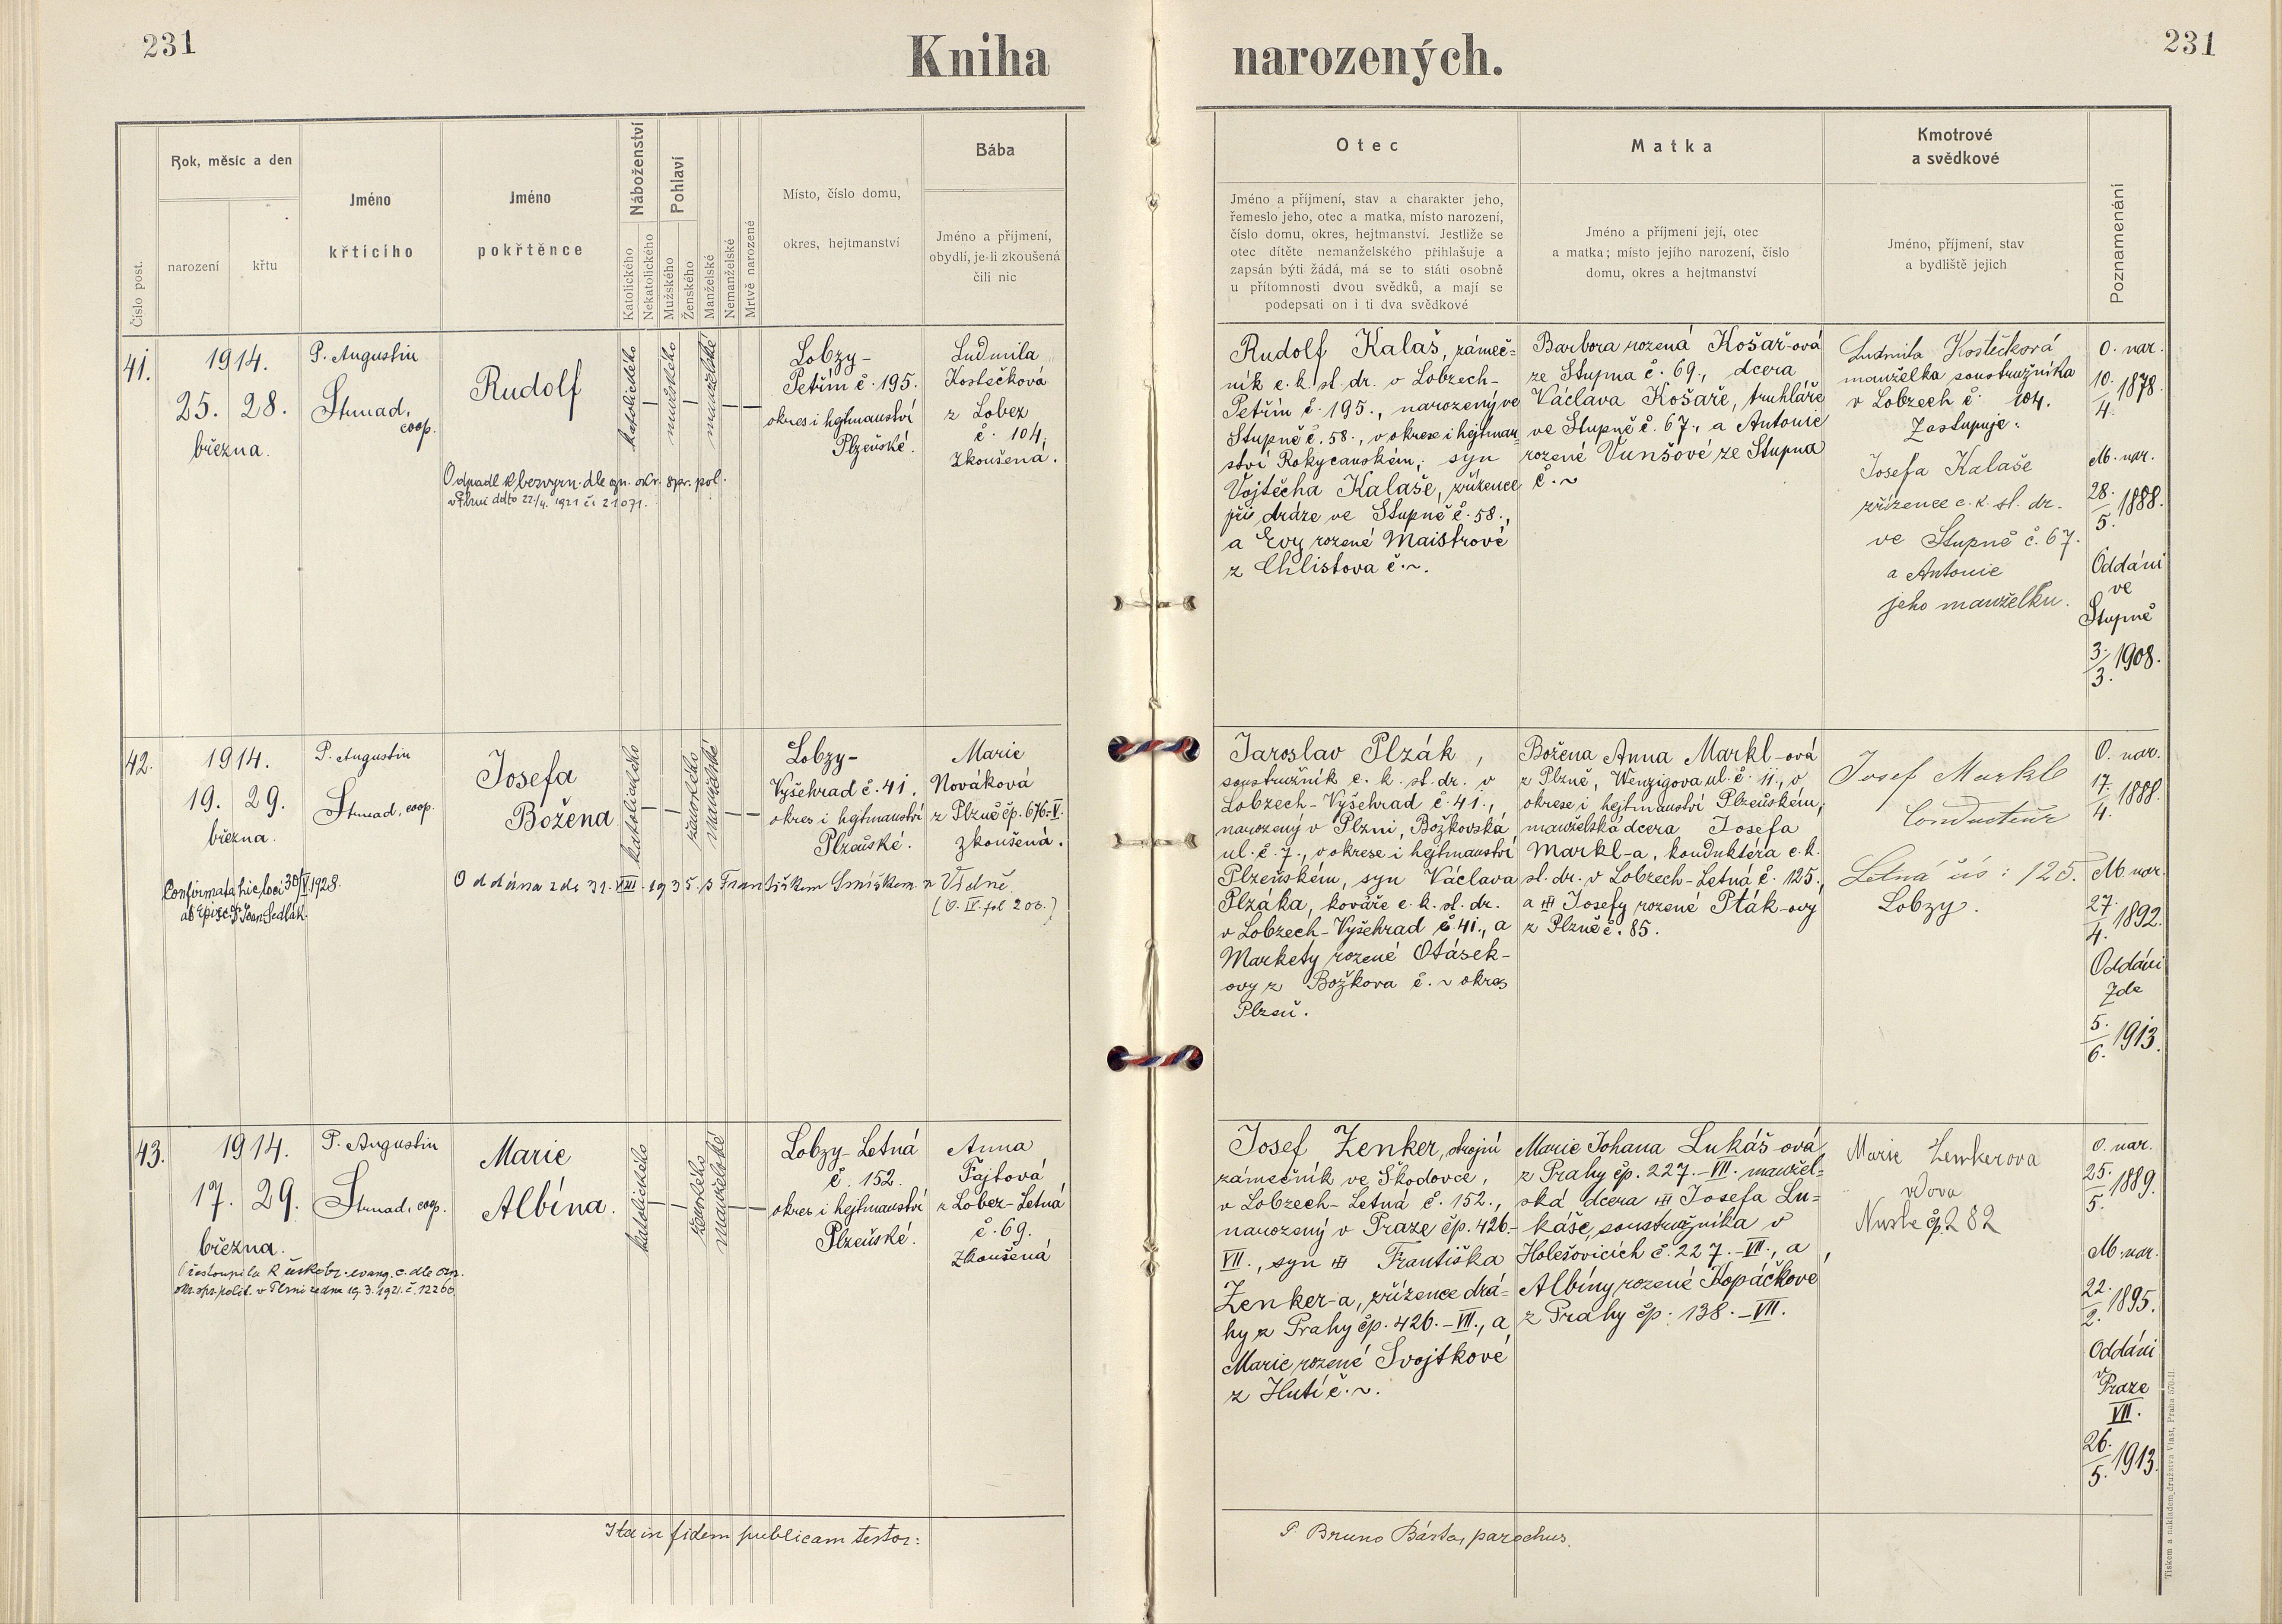 231
Kniha
narozených.
231
Číslo post.
Rok, měsíc a den
narození
křtu
Jméno
křtícího
Jméno
pokřtěnce
Náboženství
Katolického
Nekatolického
Pohlaví
Mužského
Ženského
Manželské
Nemanželské
Mrtvě narozené
Místo, číslo domu,
okres, hejtmanství
Bába
Jméno a příjmení,
obydlí, je-li zkoušená
čili nic
Otec
Jméno a příjmení, stav a charakter jeho,
řemeslo jeho, otec a matka, místo narození,
číslo domu, okres, hejtmanství. Jestliže se
otec dítěte nemanželského přihlašuje a
zapsán býti žádá, má se to státi osobně
u přítomnosti dvou svědků, a mají se
podepsati on i ti dva svědkové
Matka
Jméno a příjmení její, otec
a matka; místo jejího narození, číslo
domu, okres a hejtmanství
Kmotrové
a svědkové
Jméno, příjmení, stav
a bydliště jejich
Poznamenání
41.
1914.
25. 28.
března.
P. Augustin
Strnad,
coop.
Rudolf
katolického
mužského
manželské
Odpadl k bezvyzn. dle ozn. okr. spr. pol.
v Plzni ddto 22/4. 1921 či 21071.
Lobzy-
Petřín č. 195.
okres i hejtmanství
Plzeňské.
Ludmila
Kostečková
z Lobez
č. 104,
zkoušená.
Rudolf Kalaš, zámeč=
ník c. k. st. dr. v Lobzech-
Petřín č. 195., narozený ve
Stupně č. 58., v okrese i hejtman-
ství Rokycanském, syn
Vojtěcha Kalaše, zřízence
při dráze ve Stupně č. 58.,
a Evy rozené Maistrové
z Chlistova č. ~.
Barbora rozená Košař-ová
ze Stupna č. 69., dcera
Václava Košaře, truhláře
ve Stupně č. 67., a Antonie
rozené Vunšové ze Stupna
č. ~
Ludmila Kostečková
manželka soustružníka
v Lobzech č. 104.
Zastupuje:
Josefa Kalaše
zřízence c. k. st. dr.
ve Stupně č. 67.
a Antonie
jeho manželku.
O. nar.
10./4. 1878.
M. nar.
28./5. 1888.
Oddáni
ve
Stupně
3./3. 1908.
42.
1914.
19. 29.
března.
P. Augustin
Strnad, coop.
Josefa
Božena
katolického
ženského
manželské
Confirmata hic loci 30/V 1928.
ab Episc. Joan Sedlák.
Oddána zde 31. VIII. 1935. s Františkem Smíškem z Vídně.
(O. IV. fol 206.)
Lobzy-
Vyšehrad č. 41.
okres i hejtmanství
Plzeňské.
Marie
Nováková
z Plzně čp. 676-V.
zkoušená.
Jaroslav Plzák,
soustružník c. k. st. dr. v
Lobzech-Vyšehrad č. 41.,
narozený v Plzni, Božkovská
ul. č. 7., v okrese i hejtmanství
Plzeňském, syn Václava
Plzáka, kováře c. k. st. dr.
v Lobzech-Vyšehrad č. 41., a
Markety rozené Otásek-
ovy z Božkova č. ~ okres
Plzeň.
Božena Anna Markl-ová
z Plzně, Wenzigova ul. č. 11., v
okrese i hejtmanství Plzeňském,
manželská dcera Josefa
Markl-a, konduktéra c. k.
st. dr. v Lobzech-Letná č. 125.,
a ††† Josefy rozené Pták-ovy
z Plzně č. 85.
Josef Markl
Conducteur
Letná čís: 125.
Lobzy.
O. nar.
17./4. 1888.
M. nar.
27./4. 1892.
Oddáni
zde
5./6. 1913.
43.
1914.
17. 29.
března.
P. Augustin
Strnad, coop.
Marie
Albína.
katolického
ženského
manželské
Přestoupila k českobr. evang. c. dle ozn.
okr. spr. polit. v Plzni ze dne 19. 3. 1921. č. 12266
Lobzy-Letná
č. 152.
okres i hejtmanství
Plzeňské.
Anna
Fajtová
z Lobez-Letná
č. 69.
zkoušená
Josef Zenker, strojní
zámečník ve Škodovce,
v Lobzech-Letná č. 152.,
narozený v Praze čp. 426-
VII., syn ††† Františka
Zenker-a, zřízence drá=
hy z Prahy čp. 426.-VII., a
Marie rozené Svojtkové
z Hutí č. ~.
Marie Johana Lukáš-ová
z Prahy čp. 227.-VII. manžel=
ská dcera ††† Josefa Lu=
káše, soustružníka v
Holešovicích č. 227.-VII., a
Albíny rozené Kopáčkové
z Prahy čp. 138.-VII.
Marie Zenkerova
vdova
Nusle čp. 282
O. nar.
25./5. 1889.
M. nar.
22./2. 1895.
Oddáni
v
Praze
VII.
26./5. 1913.
Ita in fidem publicam testor:
P Bruno Bárta, parochus.
Tiskem a nákladem družstva Vlast, Praha 570-II